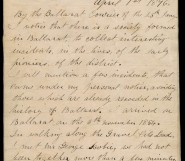 April 1st 1896.
By the Ballarat Courier of the 28th inst
I notice that there is a society formed
in Ballarat, to collect interesting
incidents, in the lives, of the early
pioneers, of the district.
I will mention a few incidents, that
came under my personal notice, among
those which are already recorded in the
history of Ballarat. I arrived in
Ballarat on the 6th
In walking along the Gravel Pits Lead
I met
been together more than a few minutes